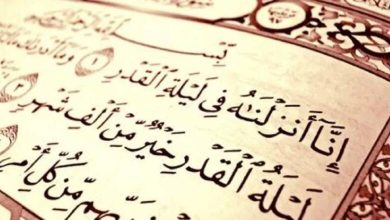 بِسْمِ
إِنَّآ أَنزَلْنَٰهُ فِي لَيْلَةِ ٱلْقَدْرِ ١ وَمَآ أَدْرَىٰكَ
لَيْلَةُ ٱلْقَدْرِ خَيْرٌ مِّنْ أَلْفِ شَهْرٍ ٣
رَبِّهِم مِّن كُلِّ أَمْرٍ